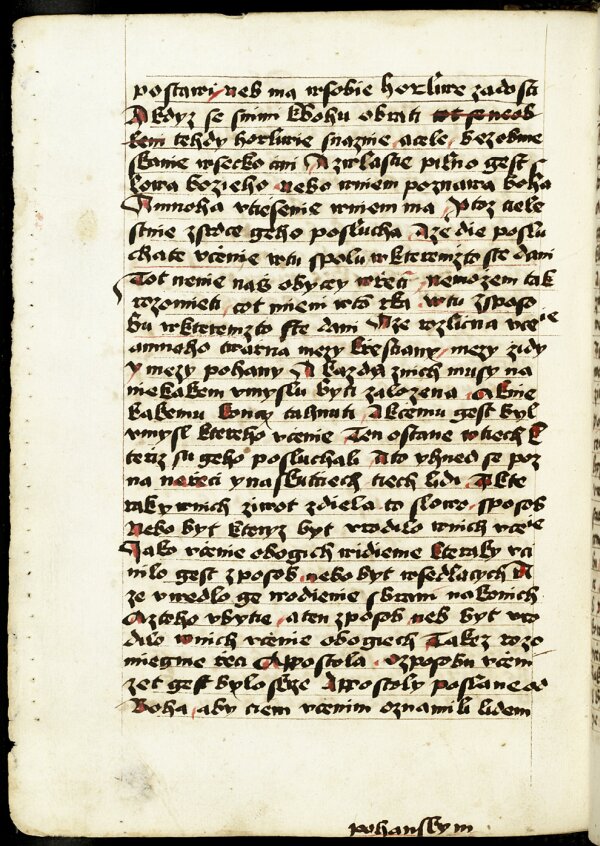 postawi neb ma wsobie horliwe zadosti
A kdyz se snim kbohu obrati tot se neob
leni tehdy horliwie snaznie acele bezobme
skanie wsecko cini A zwlastie pilno gest
slowa bozieho nebo wniem poznawa boha
Amnoha vtiesenie wniem ma Protoz ciele
stnie zsrdce geho poslucha Aze die poslu
chate vcenie wtu spolu wkteremzto ste dani
Tot nenie nas obyczey wrzeci nemozem tak
rozomieti tot mieni wto rka wtu zposo
bu wkteremzto ste dani Aze rozlicna vcenie
amnoho twarna mezy krestiany mezy zidy
y mezy pohany A kazda znich musy na
niekakem vmyslu byti zalozena Aknie
kakemu koncy tahnuti Akcemu gest byl
vmysl ktereho vcenie Ten ostane wtiech k
teriz su geho posluchali Ato yhned se poz
na nerzeci ynaskutciech tiech lidi Takte
raky wnich ziwot zdiela to slowo sposob
Nebo byt kteryz byt vrodilo wnich vcenie
Jako vcenie obogich widieme kteraky vci
nilo gest zposob nebo byt wsedlacych A
ze vwedlo ge wodienie sbrani nakonich
Aztoho vbytie aten zposob neb byt vro
dilo wnich vcenie obogiech Takez rozo
miegme rzeci Appostola Ozposobu vcenie
zet gest bylo skrze Appostoly poslane od
Boha aby tiem vcenim oznamili lidem
pohanskym